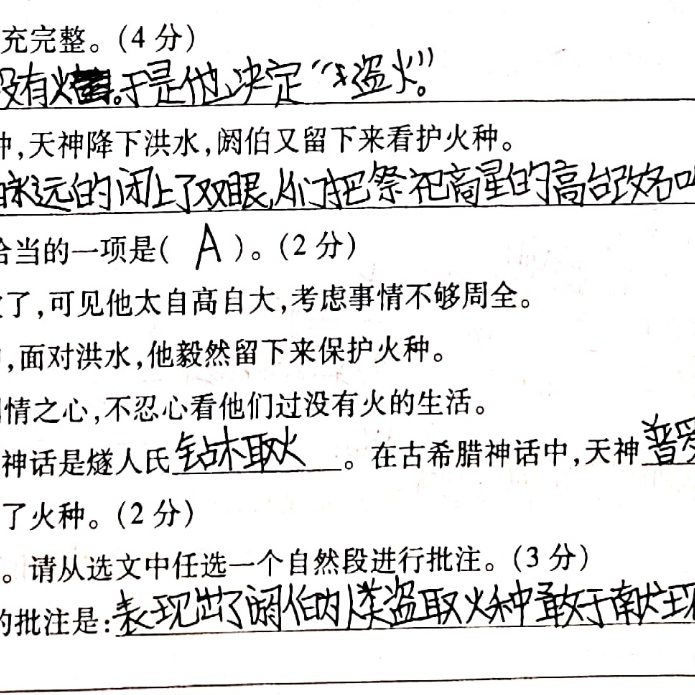 充完整。(4分)
没有火。于是他决定“盗火”。
种,天神降下洪水,阏伯又留下来看护火种。
永远的闭上了双眼,人们把祭祀商星的高台改名叫
恰当的一项是( A )。(2分)
了,可见他太自高自大,考虑事情不够周全。
,面对洪水,他毅然留下来保护火种。
情之心,不忍心看他们过没有火的生活。
神话是燧人氏钻木取火。在古希腊神话中,天神普罗
了火种。(2分)
。请从选文中任选一个自然段进行批注。(3分)
的批注是:表现出了阏伯为人类盗取火种敢于献